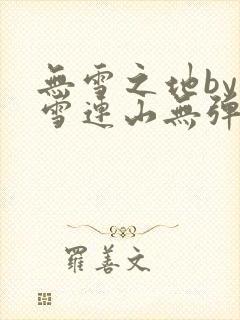 無雪之地by
雪連山無彈
羅善文